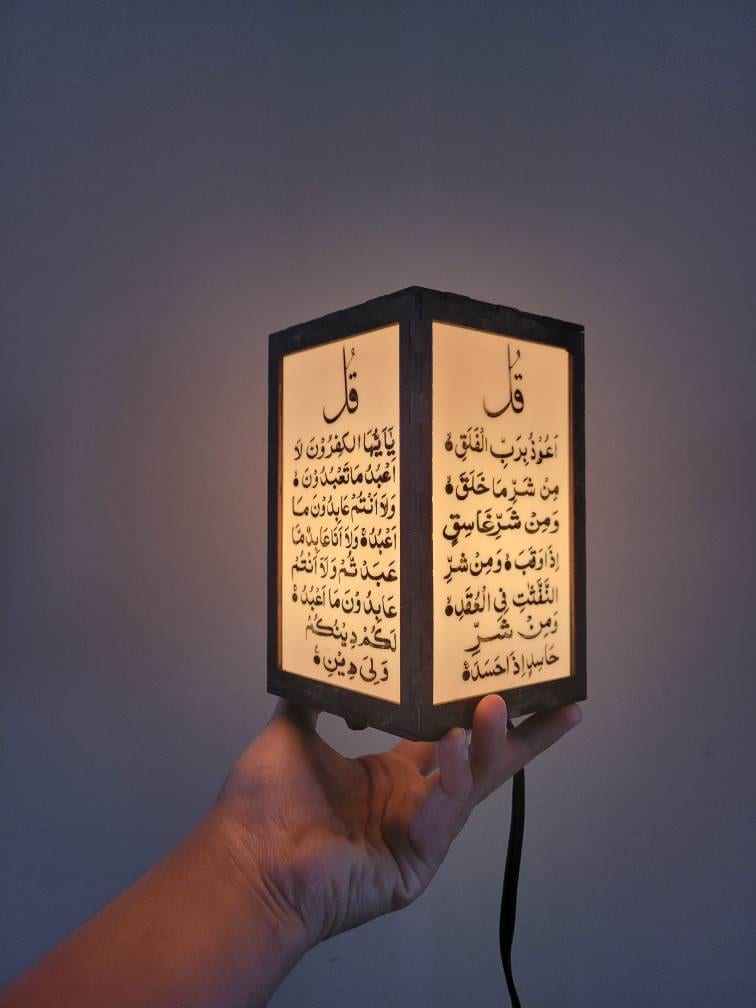 قُل
يَآاَيُّهَا الْكٰفِرُوْنَ لَا
اَعْبُدُ مَا تَعْبُدُوْنَ ۀ
وَلَا اَنْتُمْ عَابِدُوْنَ مَا
اَعْبُدُ ۀ وَلَا اَنَا عَابِدٌ مَّا
عَبَدْ تُّمْ وَلَا اَنْتُمْ
عَابِدُوْنَ مَا اَعْبُدُ ۀ
لَكُمْ دِيْنُكُمْ
وَلِىَ دِيْنِ ۀ
قُل
اَعُوْذُ بِرَبِّ الْفَلَقِ ۀ
مِنْ شَرِّ مَا خَلَقَ ۀ
وَمِنْ شَرِّ غَاسِقٍ
اِذَا وَقَبَ ۀ وَمِنْ شَرِّ
النَّفّٰثٰتِ فِى الْعُقَدِ ۀ
وَمِنْ شَرِّ
حَاسِدٍ اِذَا حَسَدَ ۀ